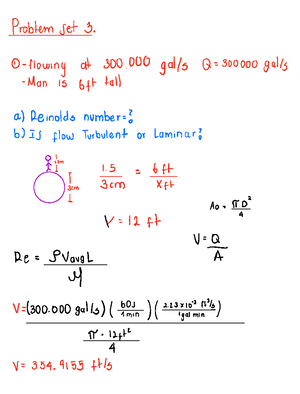 Problem set 3.
①-flowing at 300.000 gal/s Q=300000 gal/s
-Man is 6ft tall
a) Reinolds number=?
b) Is flow Turbulent or Laminar?
3cm
1.5/3cm = 6ft/xft
x = 12 ft
Ao = πD²/4
V = Q/A
Re = ρVavgL/μ
V=(300.000 gal/s)(60s/1min)(2.23x10⁻³ ft³/s/1gal min)
π·12ft²/4
V= 354.9155 ft/s